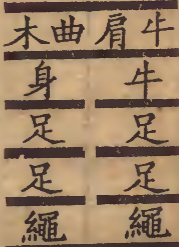 牛肩
牛
足
足
繩
曲木
身
足
足
繩